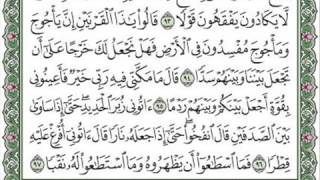 لَّا يَكَادُونَ يَفْقَهُونَ قَوْلًا ٩٣ قَالُوا۟ يَٰذَا ٱلْقَرْنَيْنِ إِنَّ يَأْجُوجَ
وَمَأْجُوجَ مُفْسِدُونَ فِى ٱلْأَرْضِ فَهَلْ نَجْعَلُ لَكَ خَرْجًا عَلَىٰٓ أَن
تَجْعَلَ بَيْنَنَا وَبَيْنَهُمْ سَدًّا ٩٤ قَالَ مَا مَكَّنِّى فِيهِ رَبِّى خَيْرٌ فَأَعِينُونِى
بِقُوَّةٍ أَجْعَلْ بَيْنَكُمْ وَبَيْنَهُمْ رَدْمًا ٩٥ ءَاتُونِى زُبَرَ ٱلْحَدِيدِ حَتَّىٰٓ إِذَا سَاوَىٰ
بَيْنَ ٱلصَّدَفَيْنِ قَالَ ٱنفُخُوا۟ حَتَّىٰٓ إِذَا جَعَلَهُۥ نَارًا قَالَ ءَاتُونِىٓ أُفْرِغْ عَلَيْهِ
قِطْرًا ٩٦ فَمَا ٱسْطَٰعُوٓا۟ أَن يَظْهَرُوهُ وَمَا ٱسْتَطَٰعُوا۟ لَهُۥ نَقْبًا ٩٧